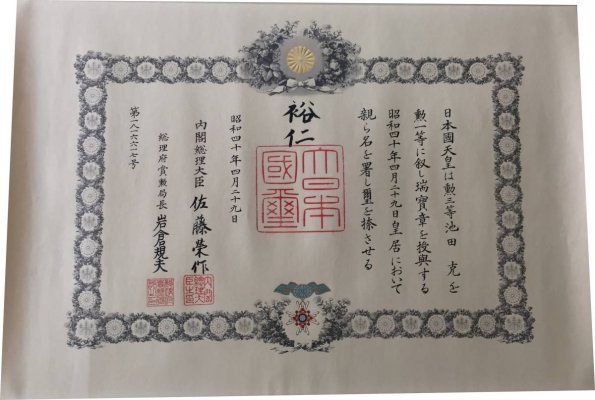 日本國天皇は勲三等池田 克を
勲一等に叙し瑞寶章を授與する
昭和四十年四月二十九日皇居において
親ら名を署し璽を捺させる
裕仁
大日本國璽
昭和四十年四月二十九日
内閣総理大臣 佐藤榮作
総理府賞勲局長 岩倉規夫
第一八六六二七号